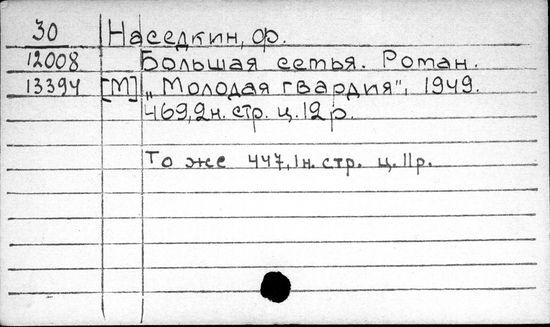 30 Наседкин, Ф.
12008 Большая семья. Роман.
13394 [М] „Молодая гвардия", 1949.
469,2н. стр. ц. 12р.
То же 447,1н. стр. ц. 11р.